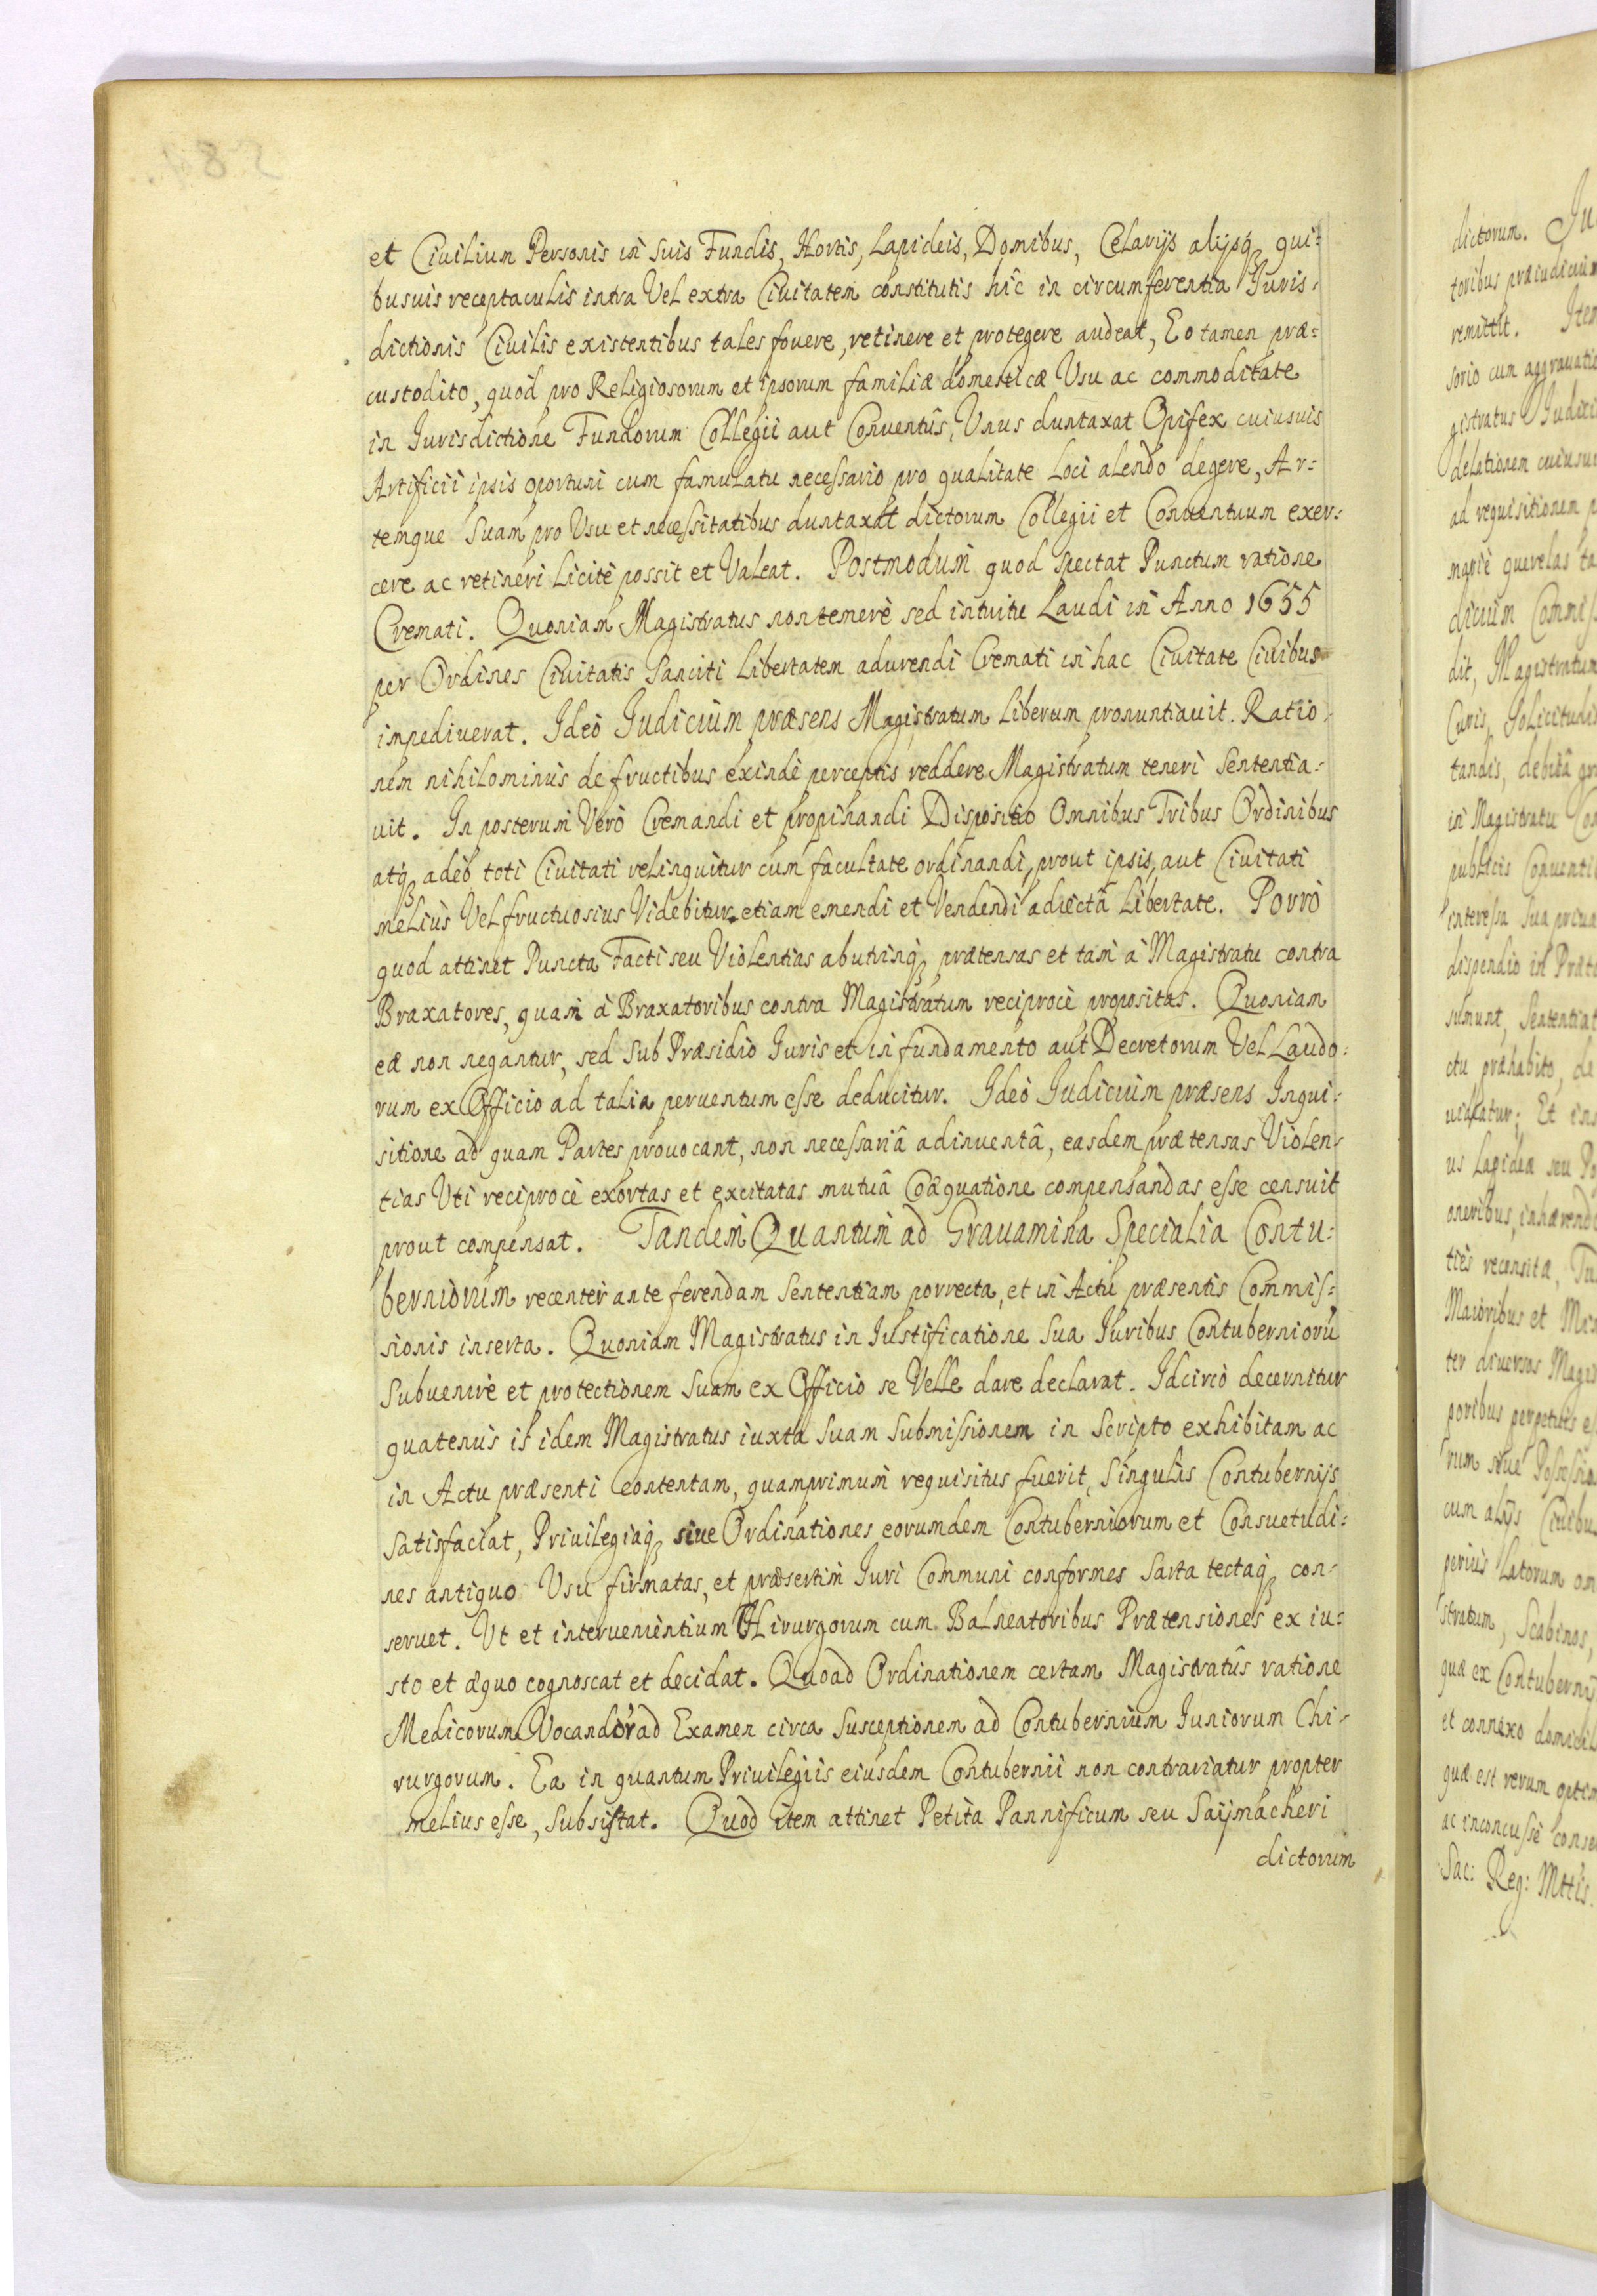 et Ciuilium Personis in suis Fundis, Hortis, Lapideis, Domibus, Celarijs alijsq, qui-
busuis receptaculis intra Vel extra Ciuitatem constitutis hîc in circumferentia Iuris-
dictionis Ciuilis existentibus tales fouere, retinere et protegere audeat, Eo tamen præ-
custodito, quod pro Religiosorum et ipsorum familiæ domesticæ Vsu ac commoditate
in Iurisdictione Fundorum Collegii aut Conuentûs, Vnus duntaxat Opifex cuiusuis
Artificii ipsis oportuni cum famulatu necessario pro qualitate Loci alendo degere, Ar-
temque suam pro Vsu et necessitatibus duntaxat dictorum Collegii et Conuentuum exer-
cere ac retineri Licitè possit et Valeat. Postmodum quod spectat Punctum ratione
Cremati. Quoniam Magistratus non temerè sed intuitu Laudi in Anno 1655
per Ordines Ciuitatis sanciti Libertatem adurendi Cremati in hac Ciuitate Ciuibus
impediuerat. Ideò Iudicium præsens Magistratum Liberum pronuntiauit. Ratio-
nem nihilominùs de fructibus exindè perceptis reddere Magistratum teneri Sententia-
uit. In posterum Verò Cremandi et propinandi Dispositio Omnibus Tribus Ordinibus
atq, adeò toti Ciuitati relinquitur cum facultate ordinandi, prout ipsis, aut Ciuitati
meliùs Vel fructuosius Videbitur, etiam emendi et Vendendi adiectâ Libertate. Porrò
quod attinet Puncta Facti seu Violentias abutrinq, prætensas et tam à Magistratu contra
Braxatores, quam à Braxatoribus contra Magistratum reciprocè propositas. Quoniam
eæ non negantur, sed sub Præsidio Iuris et in fundamento aut Decretorum Vel Laudo-
rum ex Officio ad talia peruentum esse deducitur. Ideò Iudicium præsens Inqui-
sitione ad quam Partes prouocant, non necessariâ adinuentâ, easdem prætensas Violen-
tias Vti reciprocè exortas et excitatas mutuâ Coæquatione compensandas esse censuit
prout compensat. Tandem Quantum ad Grauamina Specialia Contu-
berniorum recenter ante ferendam Sententiam porrecta, et in Actu præsentis Commis-
sionis inserta. Quoniam Magistratus in Iustificatione sua Iuribus Contuberniorũ
subuenire et protectionem suam ex Officio se Velle dare declarat. Idcircò decernitur
quatenùs is idem Magistratus iuxta suam submissionem in Scripto exhibitam ac
in Actu præsenti contentam, quamprimum requisitus fuerit, singulis Contubernijs
satisfaciat, Priuilegiaq, siue Ordinationes eorumdem Contuberniorum et Consuetudi-
nes antiquo Vsu firmatas, et præsertim Iuri Communi conformes sarta tectaq, con-
seruet. Vt et interuenientium Chirurgorum cum Balneatoribus Prætensiones ex iu-
sto et æquo cognoscat et decidat. Quoad Ordinationem certam Magistratûs ratione
Medicorum Vocandor̃ ad Examen circa susceptionem ad Contubernium Iuniorum Chi-
rurgorum. Ea in quantum Priuilegiis eiusdem Contubernii non contrariatur propter
melius esse, subsistat. Quod item attinet Petita Pannificum seu Saijmacheri
dictorum
dictorum.
toribus præiudicium
remittit.
sorio cum
gistratus
delationem
ad requisitionem
querelas
dit, Magistratum
tandis, debitâ
in Magistratu
publicis
dispendio in
sumunt,
ctu præhabito, de
Et
us Lapideæ seu
oneribus,
Maioribus et
ter diuersos
poribus perpetuis
cum alijs
stratum, Scabinos,
quæ ex
et connexo
quæ est rerum
ac inconcussè
Sac: Reg: Mttis.